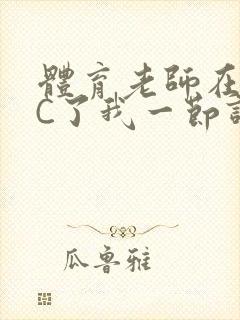 體育老師在
C了我一節
瓜魯雅